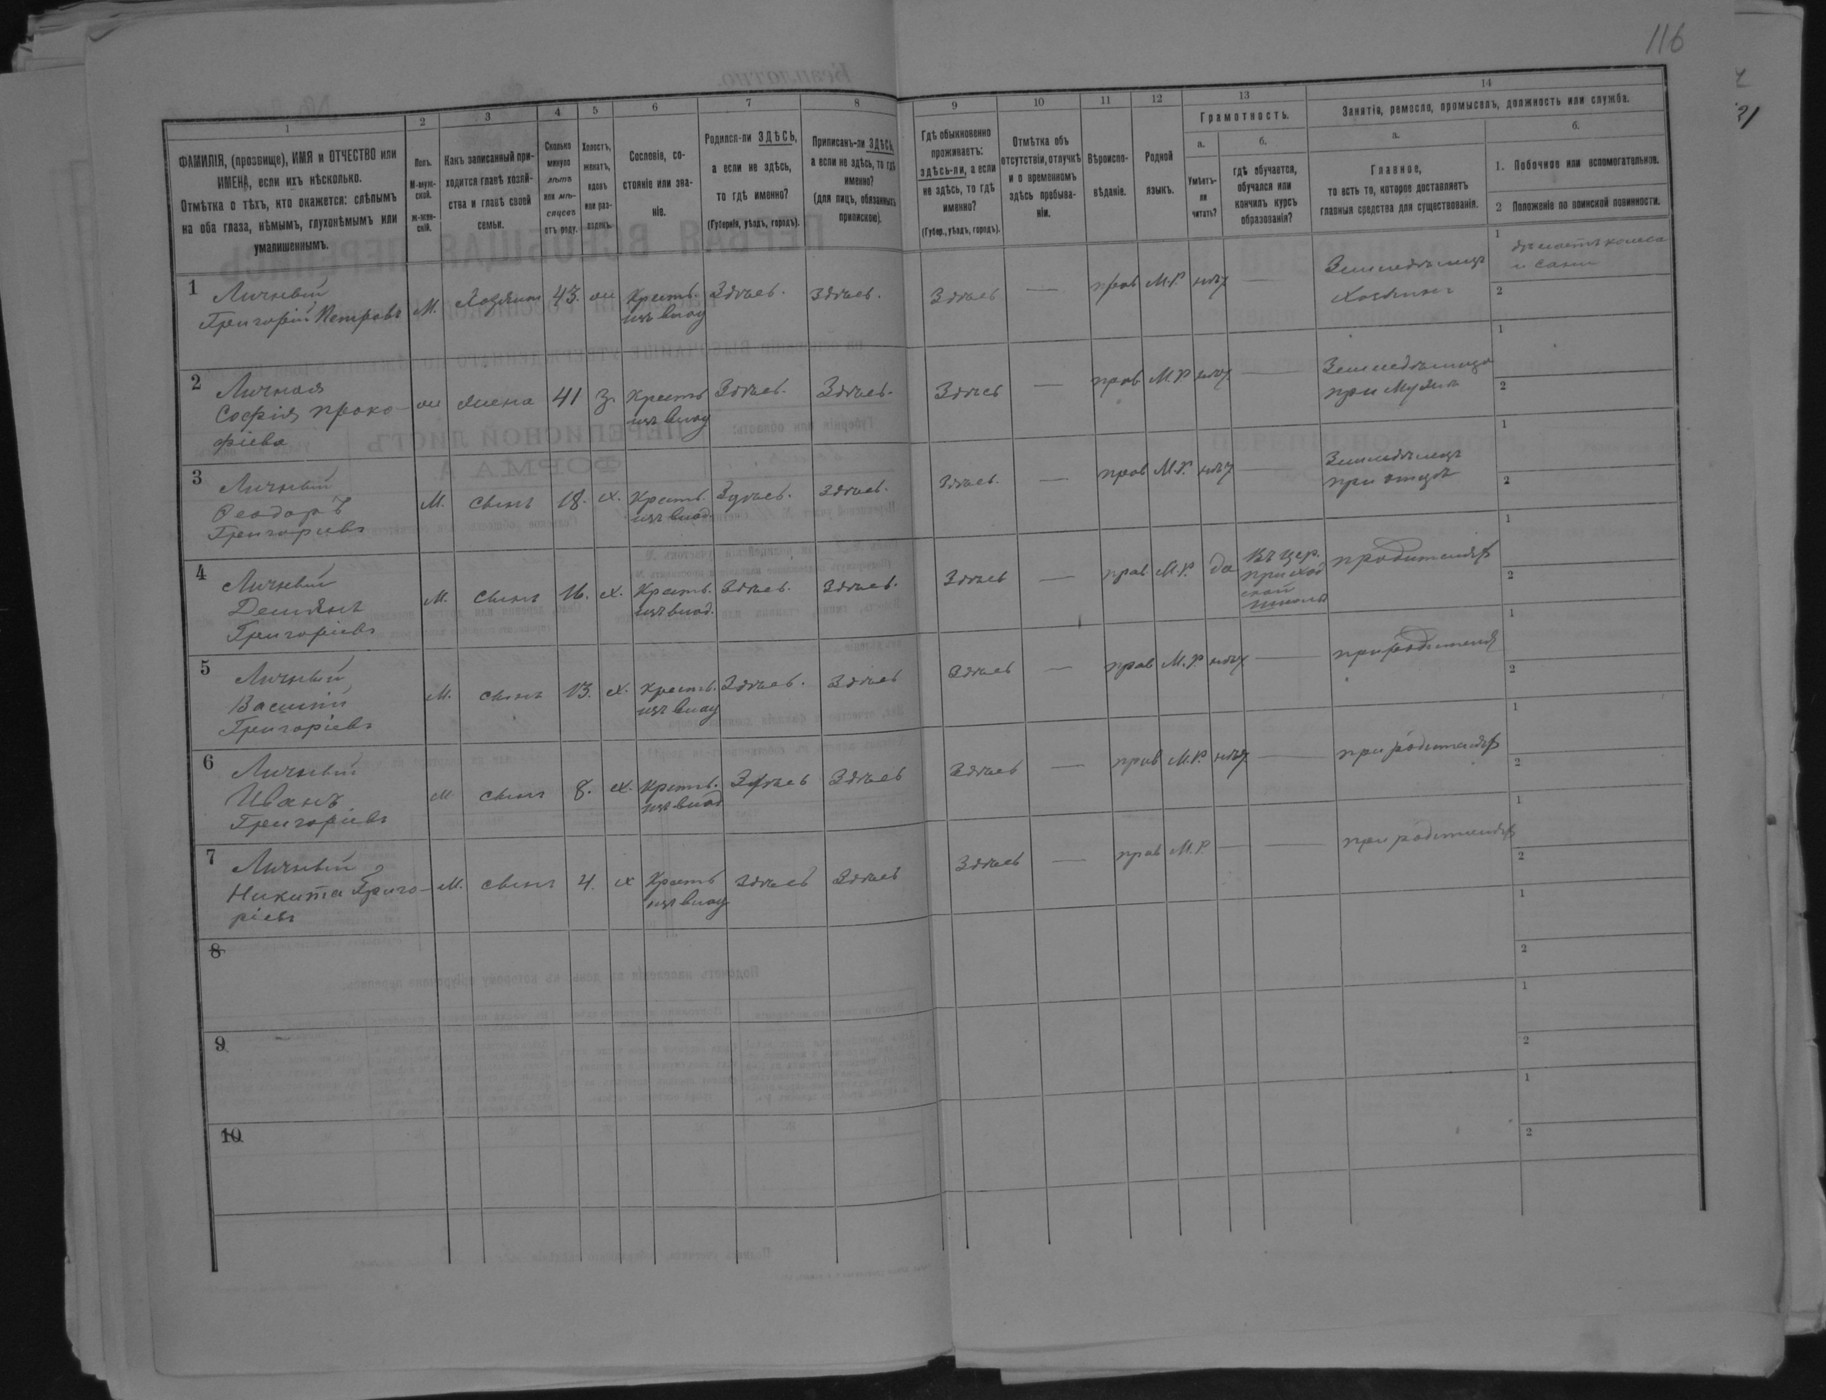 116
1 2 3 4 5 6 7 8 9 10 11 12 13 14
ФАМИЛІЯ, (прозвище), ИМЯ и ОТЧЕСТВО или ИМЕНА, если ихъ нѣсколько.
Отмѣтка о тѣхъ, кто окажется: слѣпымъ на оба глаза, нѣмымъ, глухонѣмымъ или умалишеннымъ.
Полъ. М-муж-ской. ж-жен-скій.
Какъ записанный при-ходится главѣ хозяй-ства и главѣ своей семьи.
Сколько минуло лѣтъ или мѣ-сяцевъ отъ роду.
Холостъ, женатъ, вдовъ или раз-веденъ.
Сословіе, со-стояніе или зва-ніе.
Родился-ли ЗДѢСЬ, а если не здѣсь, то гдѣ именно? (Губернія, уѣздъ, городъ).
Приписанъ-ли ЗДѢСЬ, а если не здѣсь, то гдѣ именно? (для лицъ, обязанныхъ припискою).
Гдѣ обыкновенно проживаетъ: здѣсь-ли, а если не здѣсь, то гдѣ именно? (Губер., уѣздъ, городъ).
Отмѣтка объ отсутствіи, отлучкѣ и о временномъ здѣсь пребыва-ніи.
Вѣроиспо-вѣданіе.
Родной языкъ.
Грамотность.
а. Умѣетъ-ли читать?
б. гдѣ обучается, обучался или кончилъ курсъ образованія?
Занятіе, ремесло, промыселъ, должность или служба.
а. Главное, то есть то, которое доставляетъ главныя средства для существованія.
б.
1. Побочное или вспомогательное.
2 Положеніе по воинской повинности.
1 Личный Григорій Петровъ М. Хозяинъ 43. ж Крестъ. изъ влад Здѣсь. Здѣсь. Здѣсь — прав М.Р. нѣт — Земледѣлецъ Хозяинъ 1 дѣлаетъ колеса и сани 2
2 Личная Софія Проко-фіева ж жена 41 з. Крестъ изъ влад Здѣсь. Здѣсь. Здѣсь — прав М.Р. нѣт — Земледѣлица при мужѣ 1 2
3 Личный Феодоръ Григорьевъ М. сынъ 18. х. Крестъ. изъ влад. Здѣсь. Здѣсь. Здѣсь. — прав М.Р. нѣт — Земледѣлецъ при отцѣ 1 2
4 Личный Демьянъ Григоріевъ М. сынъ 16. х. Крестъ. изъ влад. Здѣсь. Здѣсь. Здѣсь — прав М.Р. да Въ цер. приход ской школѣ 1 2
5 Личный Василій Григоріевъ М. сынъ 13. х. Крестъ. изъ влад Здѣсь. Здѣсь Здѣсь — прав М.Р нѣт — при родителях 1 2
6 Личный Иванъ Григоріевъ М сынъ 8. х. Крестъ. изъ влад Здѣсь Здѣсь Здѣсь — прав М.Р. нѣт — при родителях 1 2
7 Личный Никита Григо-ріевъ М. сынъ 4. х Крестъ изъ влад Здѣсь Здѣсь Здѣсь — прав М.Р. — — при родителях 1 2
8 1 2
9 1 2
10 1 2